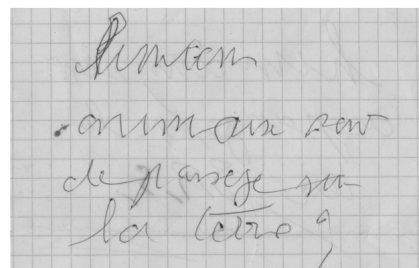 animaux son
de passage sur
la terre ;